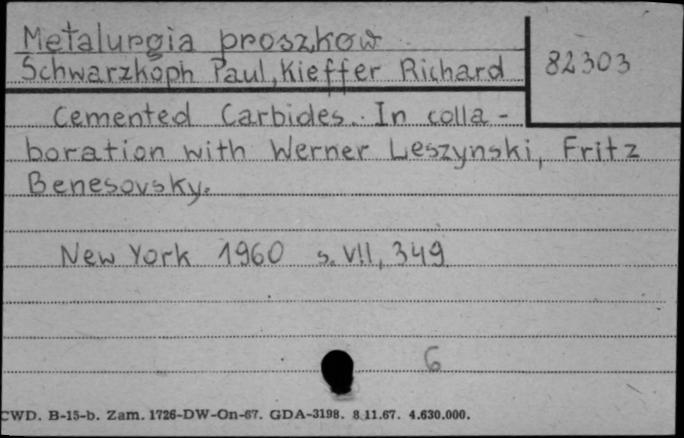 Metalurgia proszkow
Schwarzkoph Paul, Kieffer Richard
82303
Cemented Carbides. In colla-
boration with Werner Leszynski, Fritz
Benesovsky.
New York 1960 s. VII, 349
6
CWD. B-15-b. Zam. 1726-DW-On-67. GDA-3198. 8.11.67. 4.630.000.